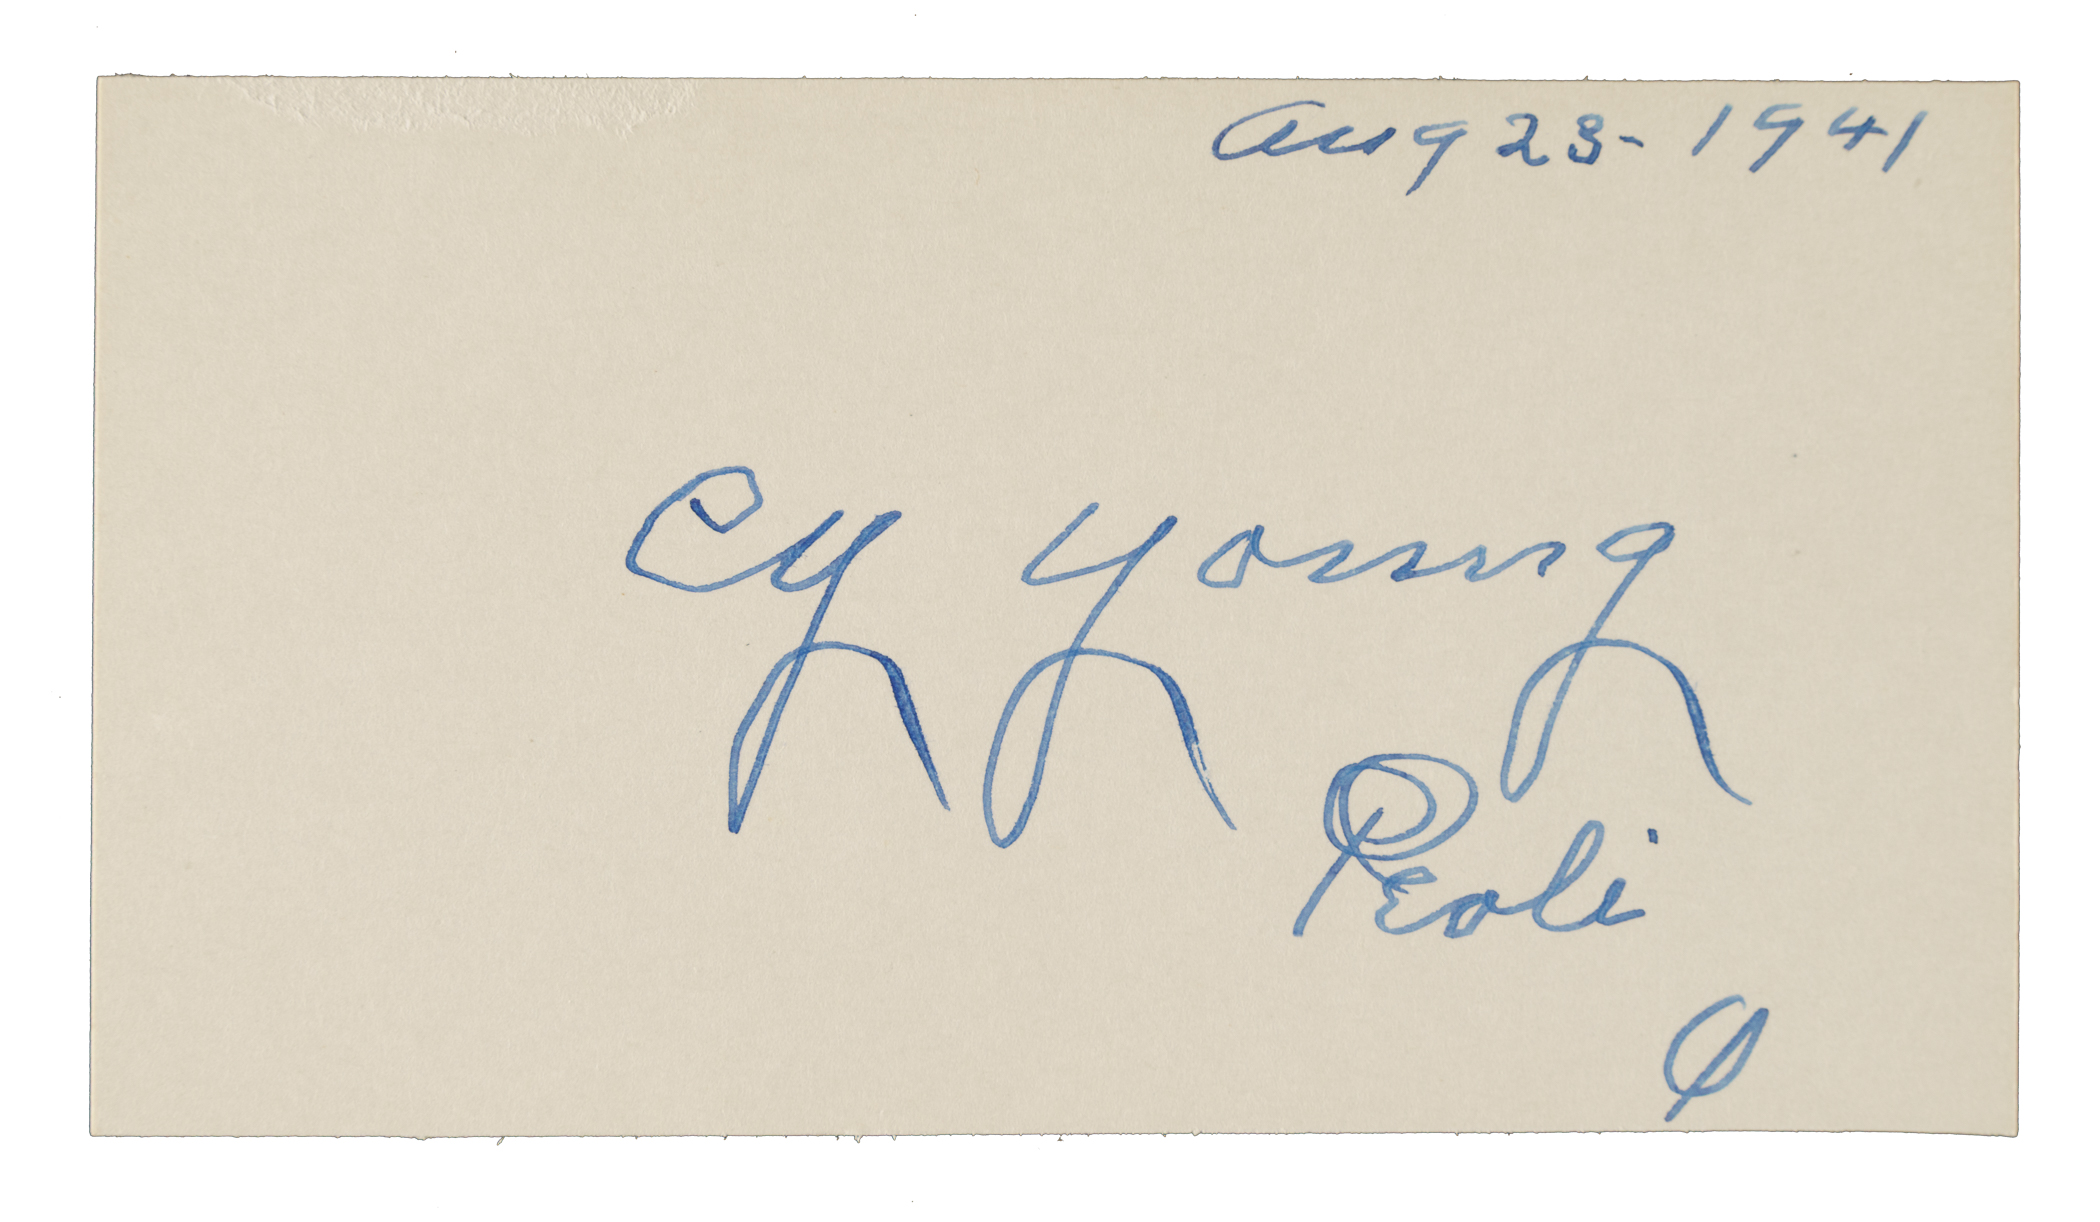 Aug 23-1941
Cy Young
Peoli
O